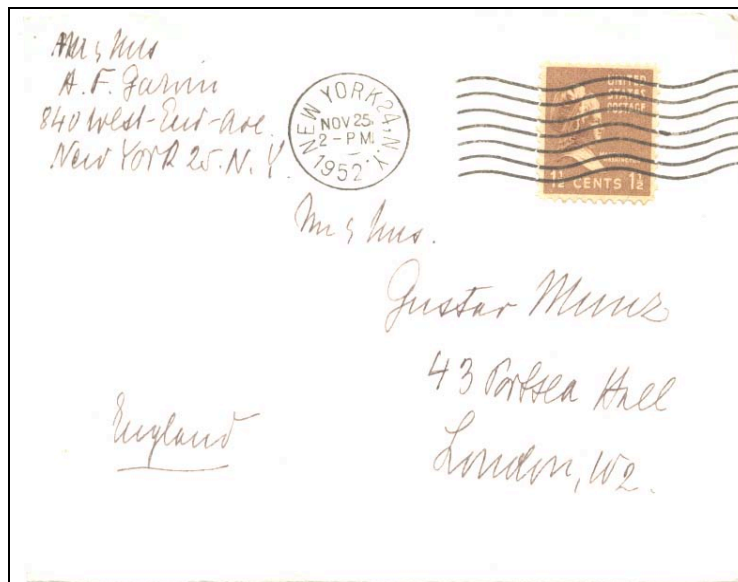 Mr & Mrs
A. F. Garvin
840 West-End-Ave.
New York 25. N. Y.
NEW YORK 24, N.Y.
NOV 25
2-PM
1952
UNITED
STATES
POSTAGE
1½ CENTS 1½
Mr & Mrs.
Gustav Munz
43 Portsea Hall
London, W2.
England